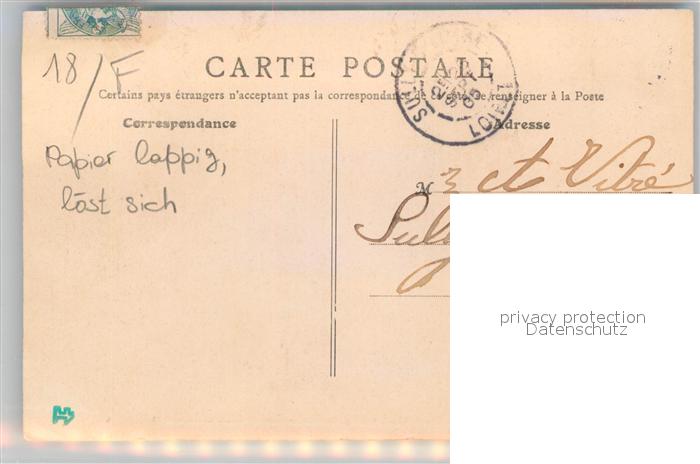 18/F
CARTE POSTALE
Certains pays étrangers n'acceptant pas la correspondance de se renseigner à la Poste
Correspondance
Adresse
Papier lappig,
löst sich
M
et Vitré
SULLY
LOIRET
05
privacy protection
Datenschutz